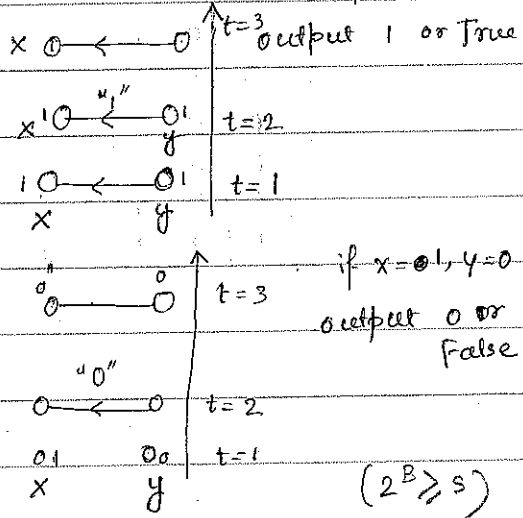 t=3 output 1 or True
x
"1"
x 1 1 t=2
y
1 1 t=1
x y
0" 0 t=3 if x=1, y=0
output 0 or
False
"0"
t=2
01 00 t=1
x y (2^B ≥ S)